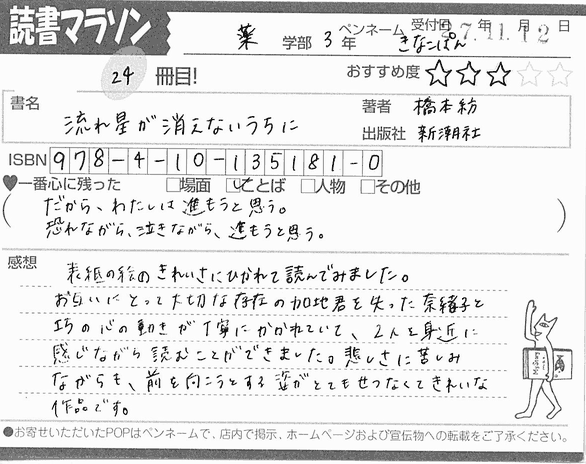 読書マラソン
薬 学部 3年 ペンネーム きなこぱん 受付日 27.11.12 年 月 日
24 冊目!
おすすめ度 ★★★☆☆
書名 流れ星が消えないうちに
著者 橋本紡
出版社 新潮社
ISBN 978-4-10-135181-0
♥一番心に残った □場面 ☑ことば □人物 □その他
だから、わたしは進もうと思う。
恐れながら、泣きながら、進もうと思う。
感想
表紙の絵のきれいさにひかれて読んでみました。
お互いにとって大切な存在の加地君を失った奈緒子と
巧の心の動きが丁寧にかかれていて、2人を身近に
感じながら読むことができました。悲しさに苦しみ
ながらも、前を向こうとする姿がとてもせつなくてきれいな
作品です。
●お寄せいただいたPOPはペンネームで、店内で掲示、ホームページおよび宣伝物への転載をご了承ください。